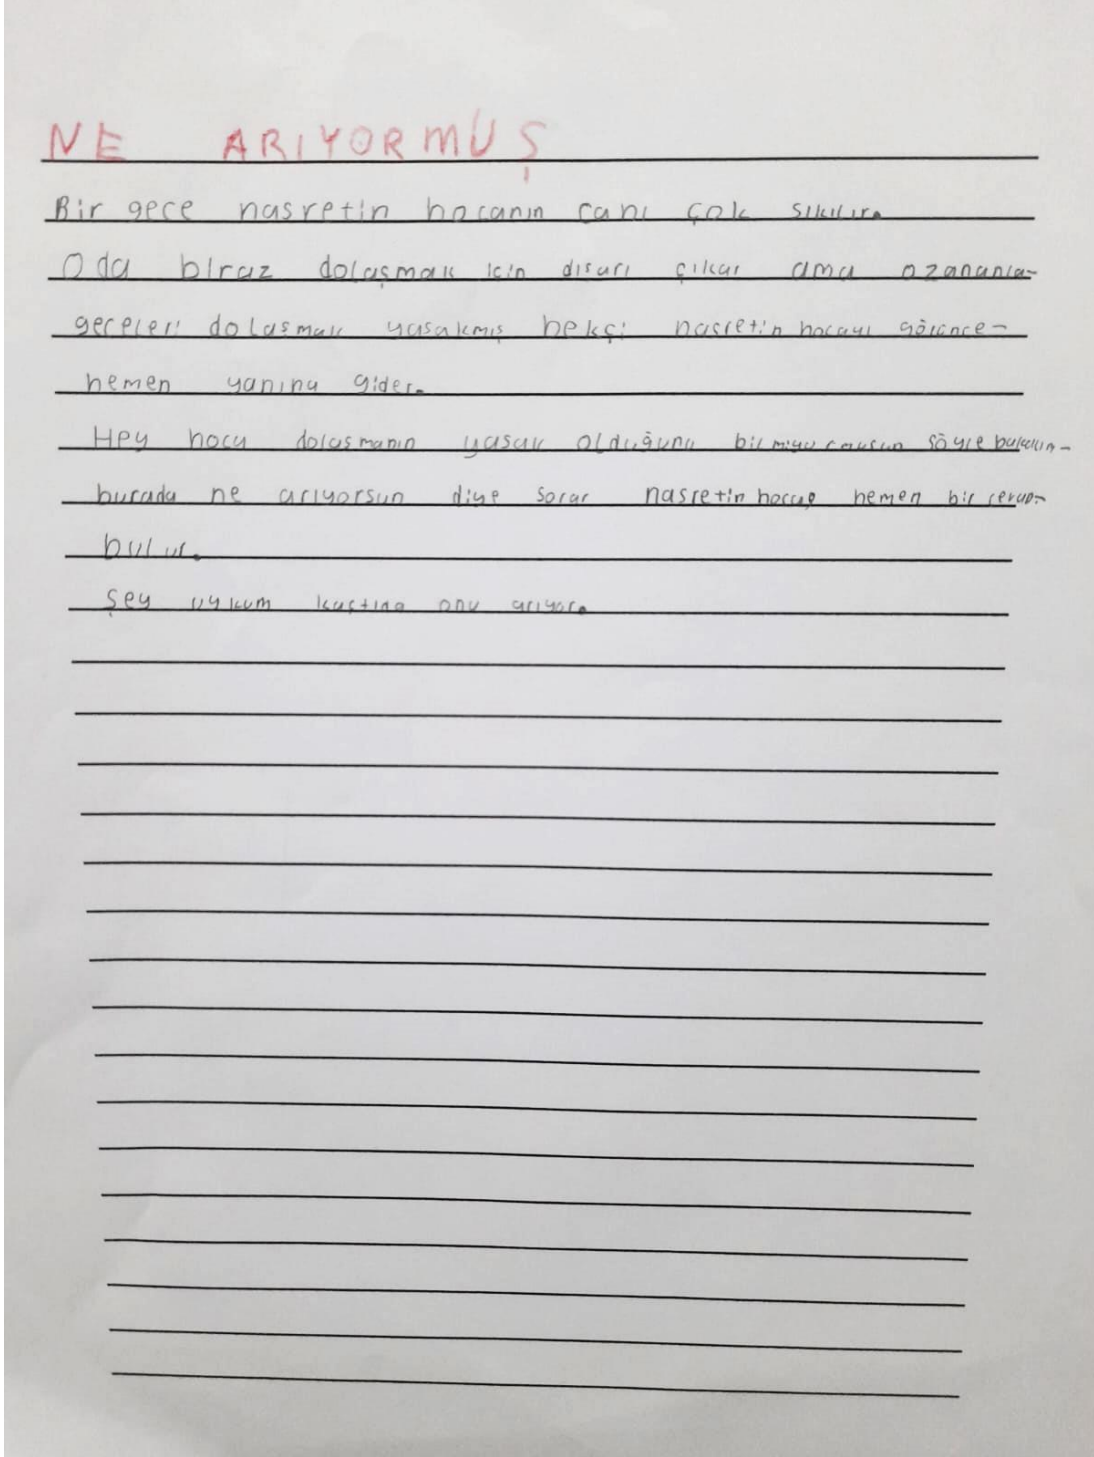 NE ARIYORMUŞ
Bir gece nasretin hocanın canı çok sıkılır.
Oda biraz dolaşmak icin dısarı çıkar ama
geceleri dolasmak yasakmış bekçi nasretin hocayı görünce-
hemen yanına gider.
Hey hoca dolasmanın yasak olduğunu söyle
burada ne arıyorsun diye sorar nasretin hemen bir cevap-
bulur.
Şey uykum kaçtına onu arıyor.